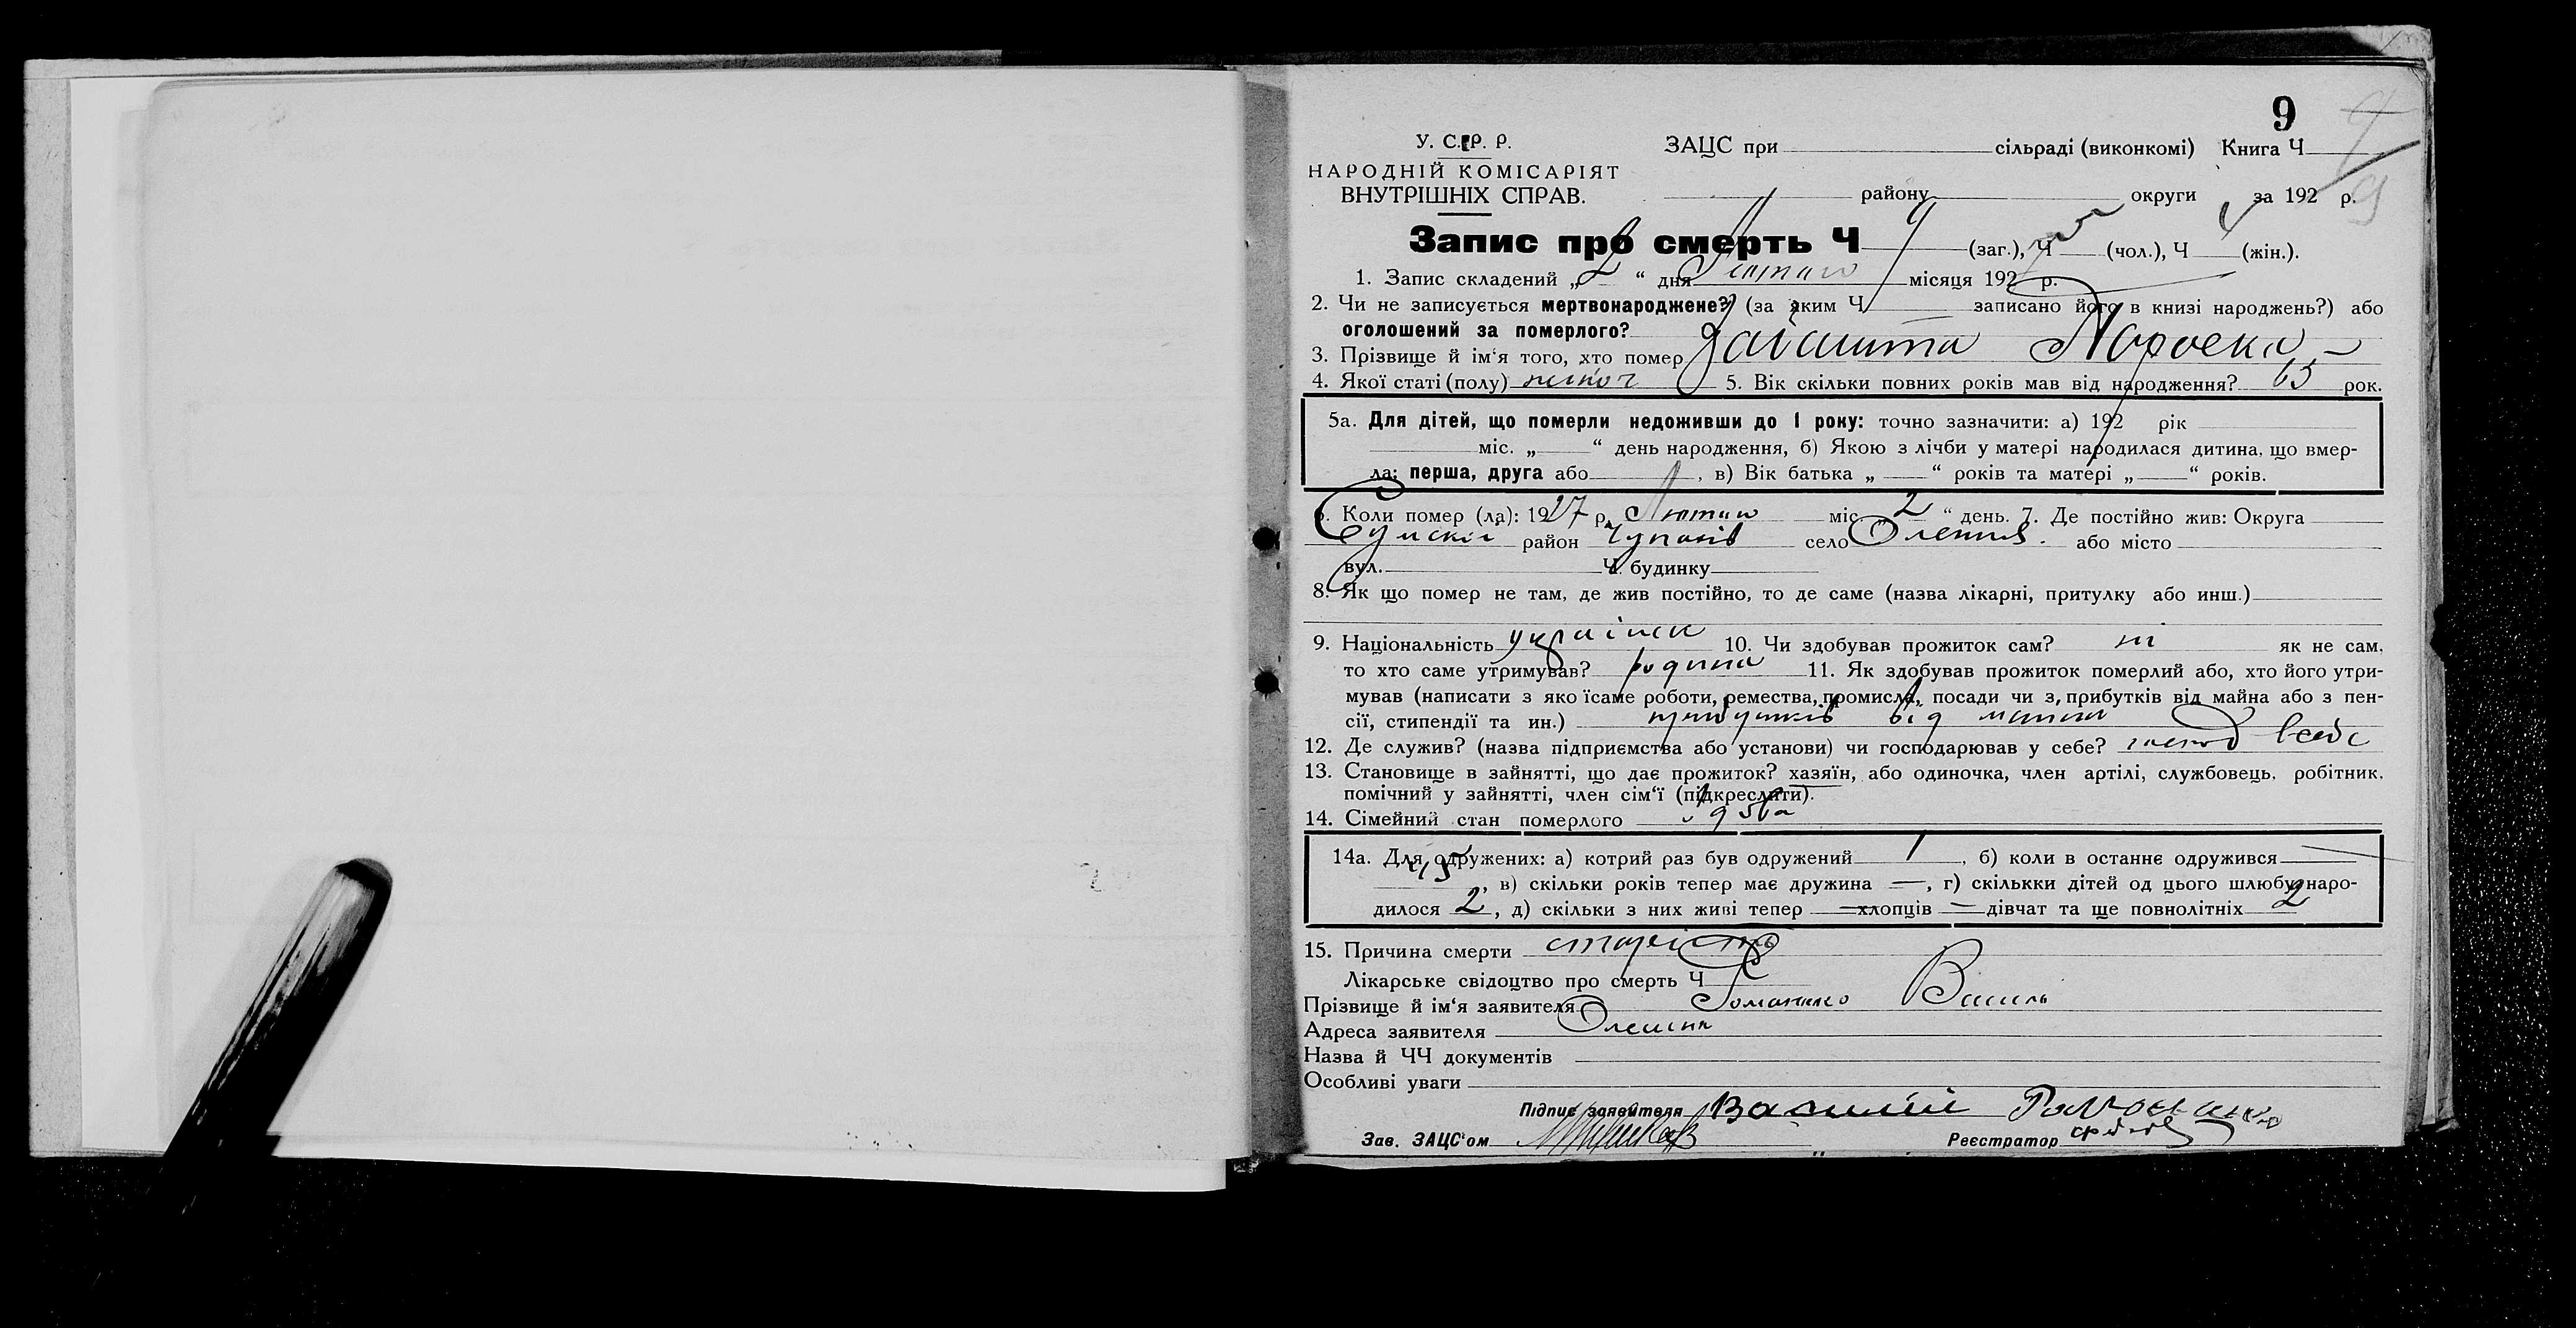 9
У. С.Р. Р.
НАРОДНІЙ КОМІСАРІЯТ
ВНУТРІШНІХ СПРАВ.
ЗАЦС при сільраді (виконкомі) Книга Ч
району округи за 192 р.
Запис про смерть Ч 9 (заг.), Ч 5 (чол.), Ч 4 (жін.).
1. Запис складений „2“ дня Лютого місяця 1927 р.
2. Чи не записується мертвонароджене? (за яким Ч записано його в книзі народжень?) або
оголошений за померлого?
3. Прізвище й ім‘я того, хто помер
4. Якої статі (полу) жіноч 5. Вік скільки повних років мав від народження? 65 рок.
5а. Для дітей, що померли недоживши до 1 року: точно зазначити: а) 192 рік
міс. „ “ день народження, б) Якою з лічби у матері народилася дитина, що вмер-
ла: перша, друга або , в) Вік батька „ “ років та матері „ “ років.
6. Коли помер (ла): 1927 р. Лютого міс. „2“ день. 7. Де постійно жив: Округа
Сумскій район село або місто
вул. Ч. будинку
8. Як що помер не там, де жив постійно, то де саме (назва лікарні, притулку або инш.)
9. Національність українск 10. Чи здобував прожиток сам? ні як не сам,
то хто саме утримував? родина 11. Як здобував прожиток померлий або, хто його утри-
мував (написати з яко їсаме роботи, ремества, промисла, посади чи з, прибутків від майна або з пен-
сії, стипендії та ин.) прибутків від майна
12. Де служив? (назва підприємства або установи) чи господарював у себе? господ всебе
13. Становище в зайнятті, що дає прожиток? хазяїн, або одиночка, член артілі, службовець, робітник,
помічний у зайнятті, член сім‘ї (підкреслити).
14. Сімейний стан померлого удова
14а. Для одружених: а) котрий раз був одружений 1, б) коли в останнє одружився
45, в) скільки років тепер має дружина —, г) скількки дітей од цього шлюбу наро-
дилося 2, д) скільки з них живі тепер — хлопців — дівчат та ще повнолітніх 2
15. Причина смерти старість
Лікарське свідоцтво про смерть Ч
Прізвище й ім‘я заявителя Романенко Василь
Адреса заявителя Олешня
Назва й ЧЧ документів
Особливі уваги
Підпис заявителя Василий Романенко
Зав. ЗАЦС‘ом
Реєстратор